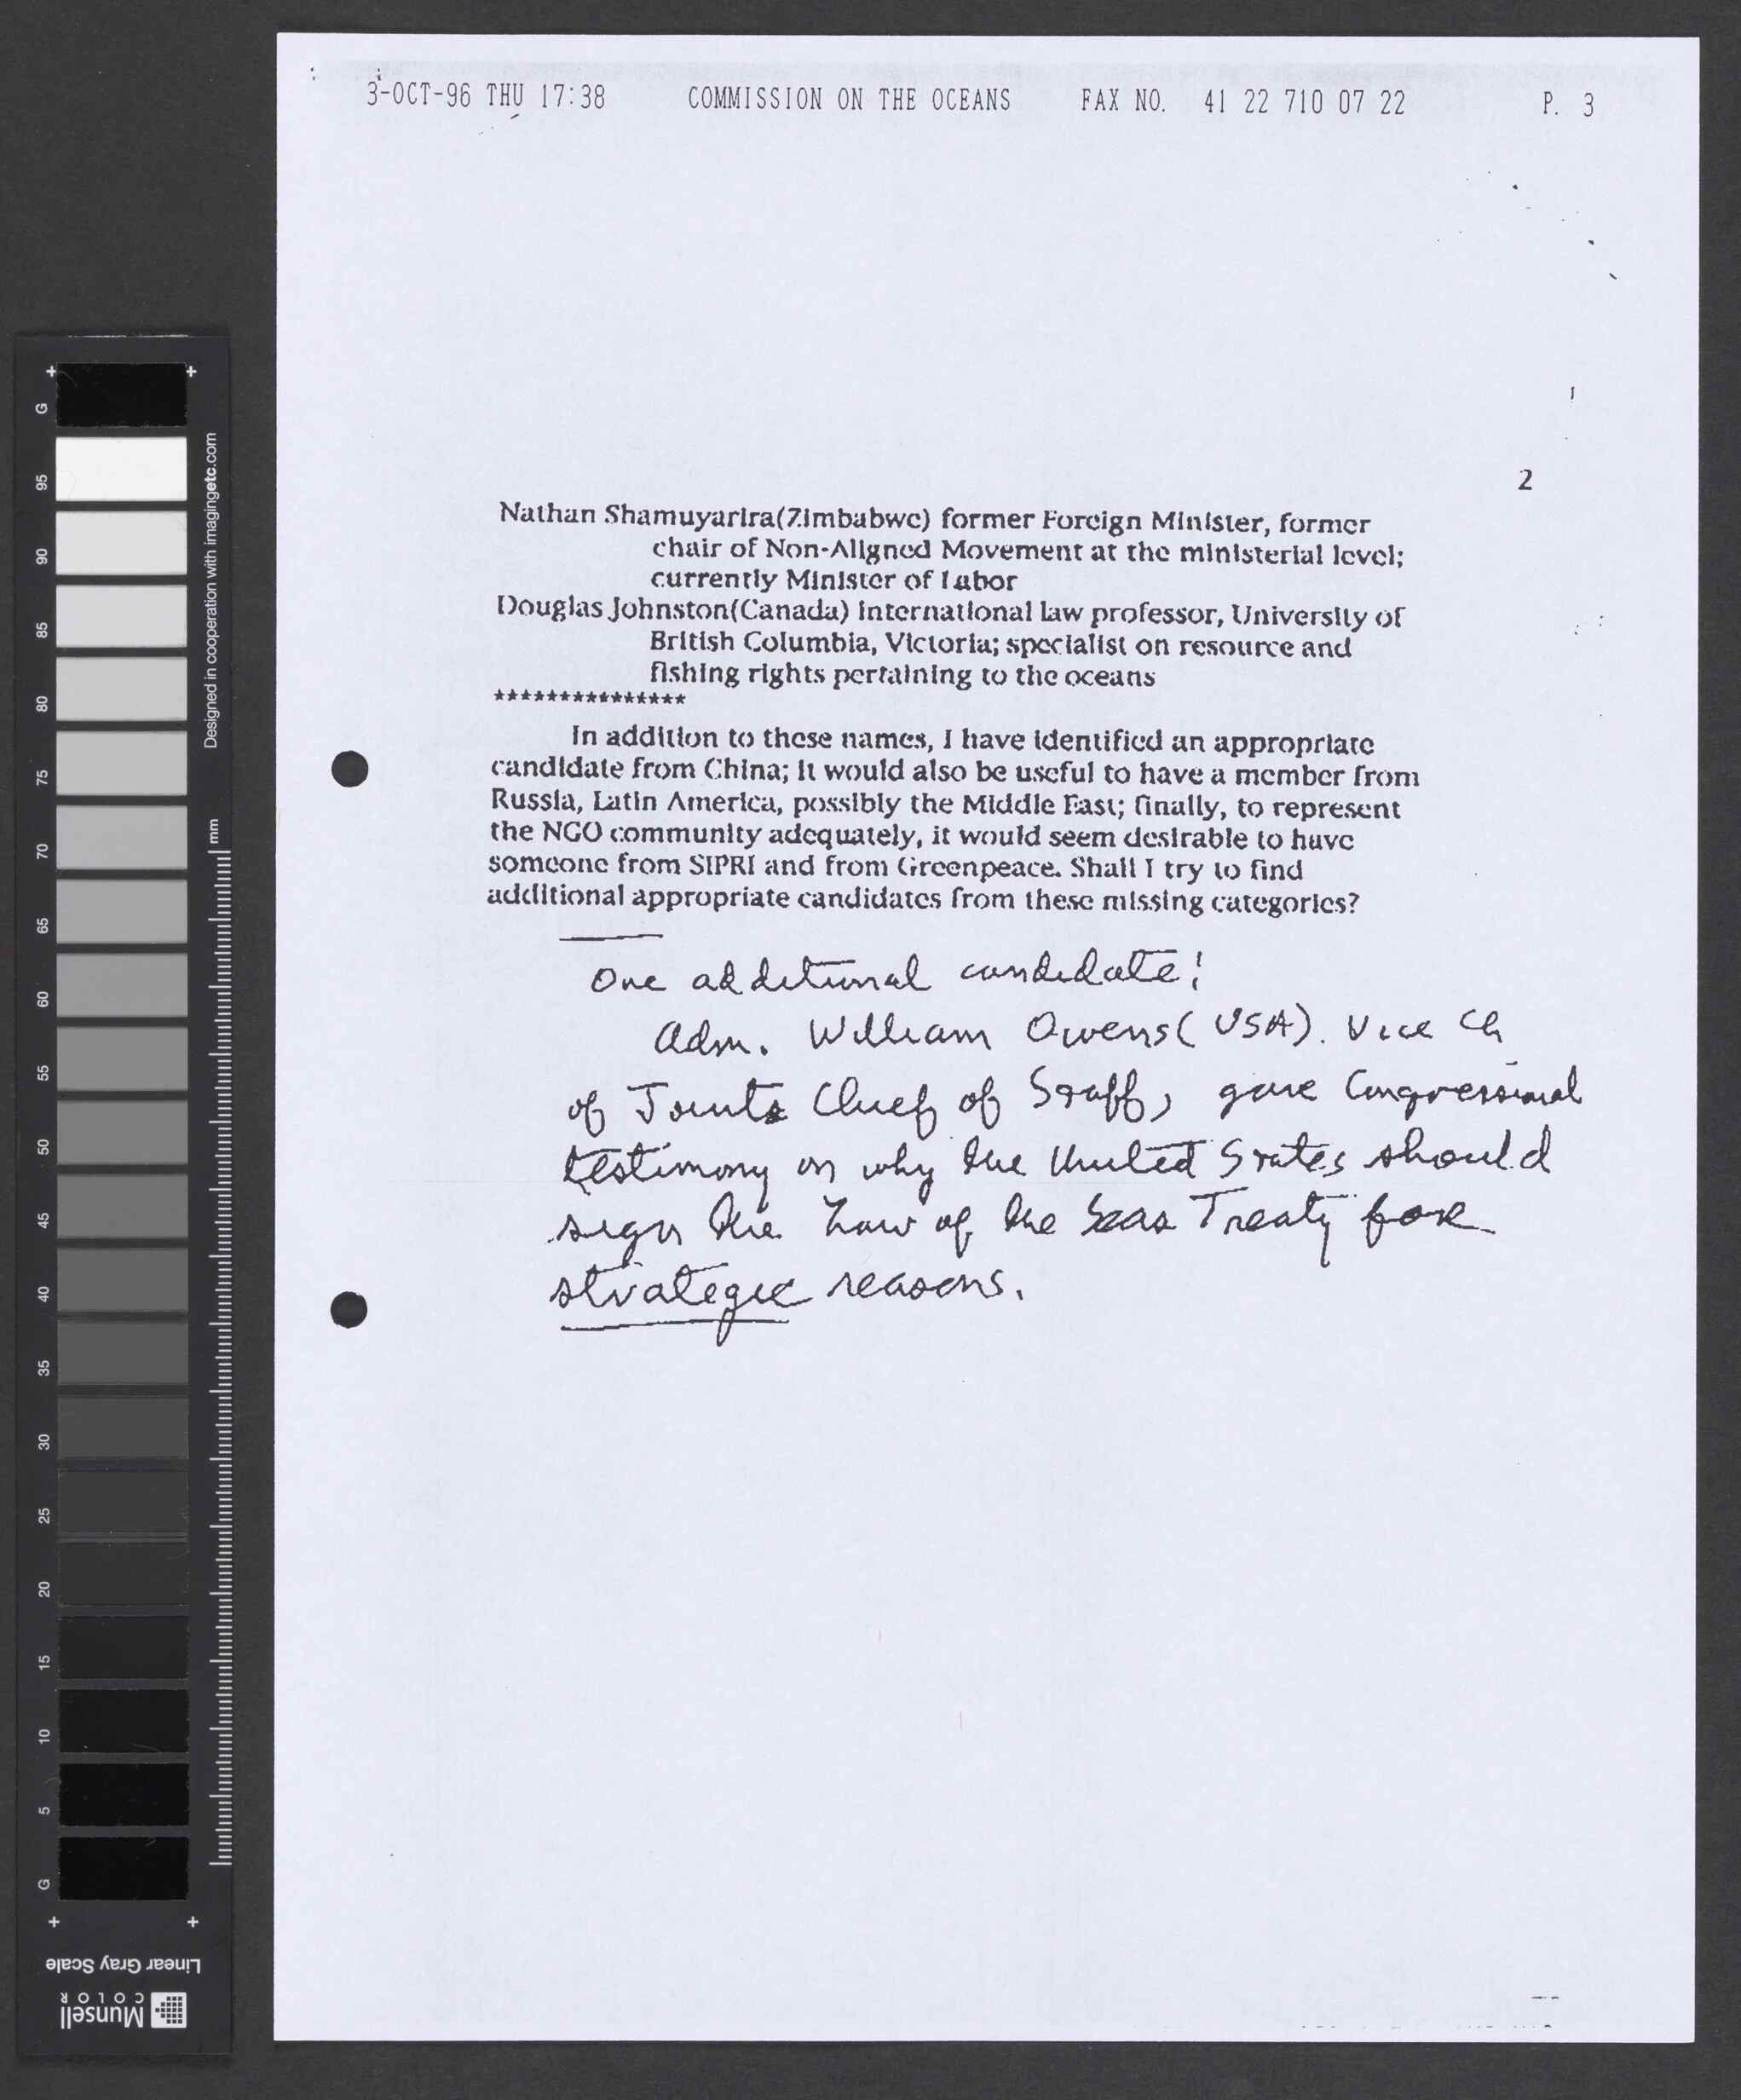 3-OCT-96 THU 17:38 COMMISSION ON THE OCEANS FAX NO. 41 22 710 07 22 P. 3
2
Nathan Shamuyarira(Zimbabwe) former Foreign Minister, former
chair of Non-Aligned Movement at the ministerial level;
currently Minister of Labor
Douglas Johnston(Canada) international law professor, University of
British Columbia, Victoria; specialist on resource and
fishing rights pertaining to the oceans
***************
In addition to these names, I have identified an appropriate
candidate from China; it would also be useful to have a member from
Russia, Latin America, possibly the Middle East; finally, to represent
the NGO community adequately, it would seem desirable to have
someone from SIPRI and from Greenpeace. Shall I try to find
additional appropriate candidates from these missing categories?
One additional candidate:
Adm. William Owens (USA). Vice Ch
of Joints Chief of Staff, gave Congressional
testimony on why the United States should
sign the Law of the Seas Treaty for
strategic reasons.
G
95
90
85
80
75
70
65
60
55
50
45
40
35
30
25
20
15
10
5
G
Designed in cooperation with imagingetc.com
mm
Linear Gray Scale
Munsell
COLOR